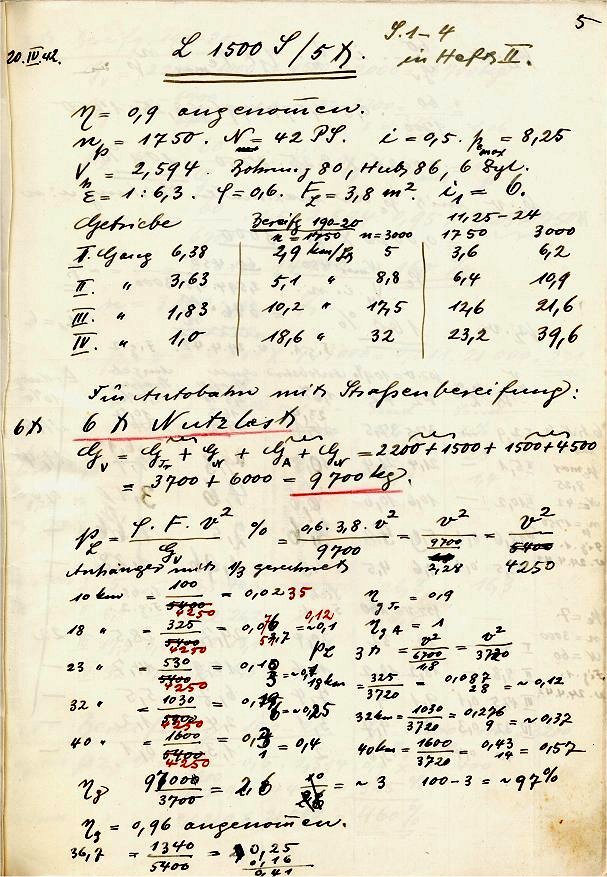 5
20.IV.42.
L 1500 S/5t.
S. 1-4
in Heft II.
η = 0,9 angenom̅en.
n_p = 1750. N = 42 PS. i = 0,5. p_e max = 8,25
V_h = 2,594. Bohrung 80, Hub 86, 6 Zyl.
ε = 1:6,3. φ = 0,6. F_L = 3,8 m². i_1 = 6.
Getriebe Bereifg 190-20 11,25-24
n = 1750 n=3000 1750 3000
I. Gang 6,38 2,9 km/h 5 3,6 6,2
II. " 3,63 5,1 " 8,8 6,4 10,9
III. " 1,83 10,2 " 17,5 12,6 21,6
IV. " 1,0 18,6 " 32 23,2 39,6
Für Autobahn mit Straßenbereifung:
6t 6 t Nutzlast
G_v = G_Tr + G_N + G_A + G_N = 2200 + 1500 + 1500 + 4500
= 3700 + 6000 = 9700 kg.
p_L = φ. F. v² / G_v % = 0,6. 3,8. v² / 9700 = v² / 9700 / 2,28 = v² / 5400 4250
Anhänger mit 1/3 gerechnet
10 km = 100 / 5400 4250 = 0,0235 η_g Tr = 0,9
18 " = 325 / 5400 4250 = 0,076 = ~0,1 0,12 η_g A = 1
p_L 3t = v² / 6700 / 1,8 = v² / 3720
23 " = 530 / 5400 4250 18km = 325 / 3720 = 0,087 = ~ 0,12
32 " = 1030 / 5400 4250 = ~0,25 32km = 1030 / 3720 = 0,276 = ~ 0,37
40 " = 1600 / 5400 4250 = 0,4 40km = 1600 / 3720 = 0,43 = 0,57
η_g 97000 / 3700 = 2,6 = ~ 3 100-3 = ~97%
η_g = 0,96 angenom̅en.
36,7 = 1340 / 5400 = 0,25
0,16
0,41